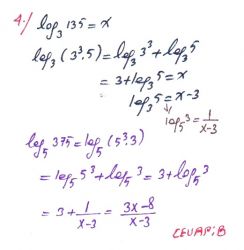 4./ log₃ 135 = x
log₃ (3³.5) = log₃ 3³ + log₃ 5
= 3 + log₃ 5 = x
log₃ 5 = x-3
log₅ 3 = 1/(x-3)
log₅ 375 = log₅ (5³.3)
= log₅ 5³ + log₅ 3 = 3 + log₅ 3
= 3 + 1/(x-3) = (3x-8)/(x-3)
CEVAP: B